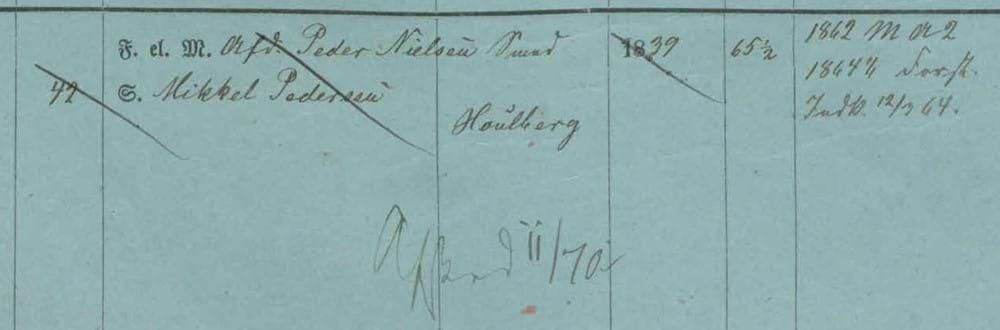 F. el. M. Afd. Peder Nielsen Smed 1839 65 1/2 1862 M A 2
42 S. Mikkel Pedersen 1864 Forst.
Houlberg Indk. 12/3 64.
Afsked 11/70